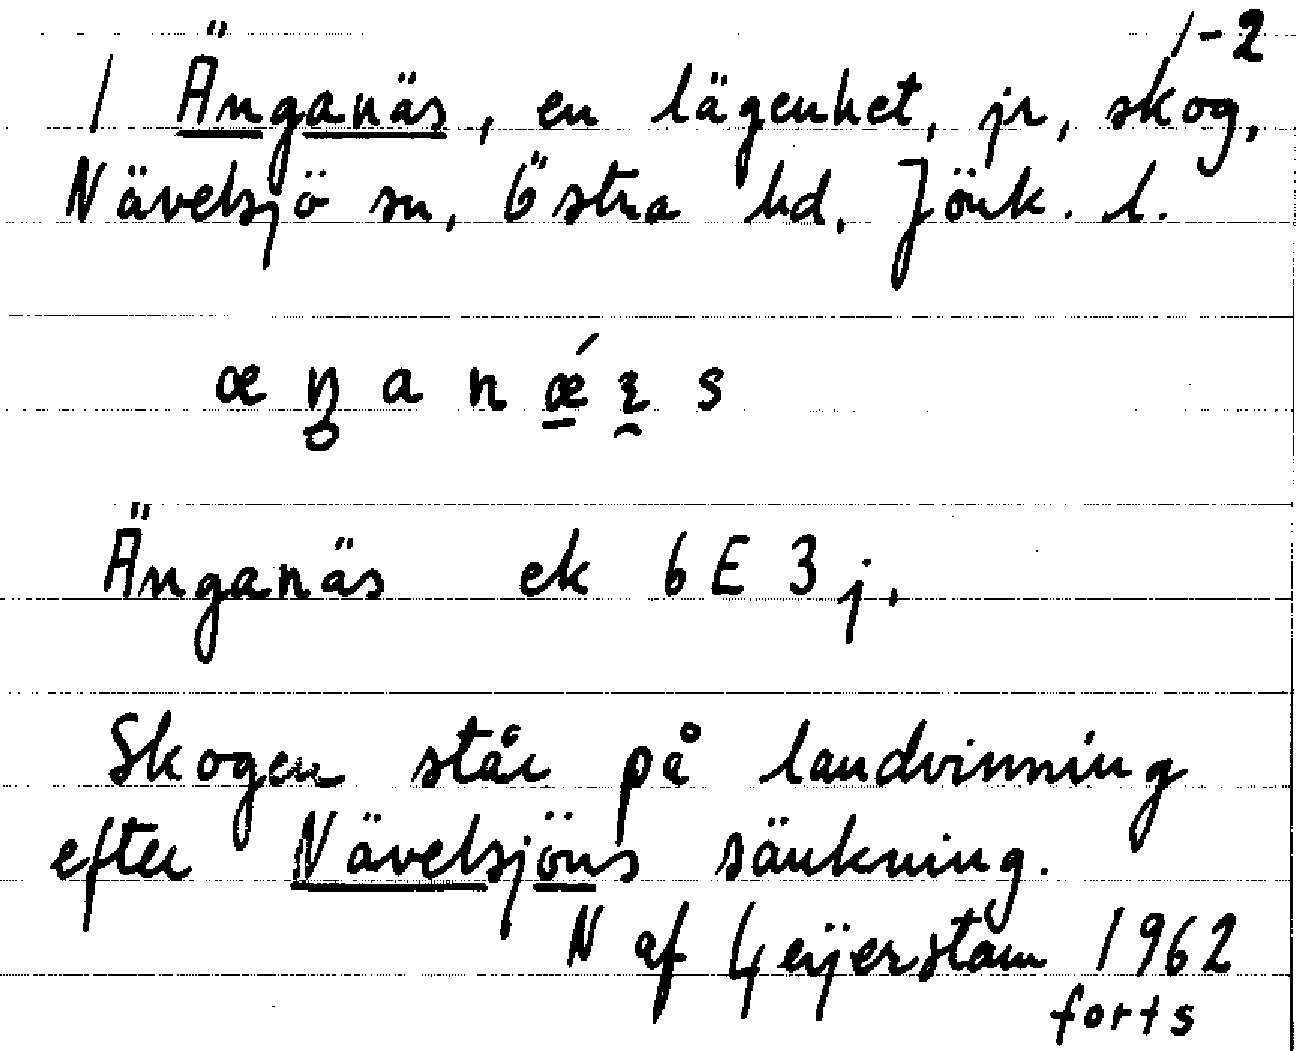 1-2
1 Änganäs, en lägenhet, jr, skog,
Nävelsjö sn, Östra hd. Jönk. l.
æ ŋ a n ǽ s
Änganäs ek 6E 3j.
Skogen står på landvinning
efter Nävelsjöns sänkning.
N af Geijerstam 1962
forts